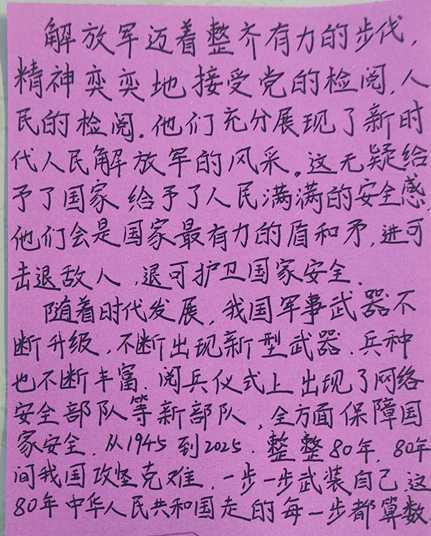 解放军迈着整齐有力的步代,
精神奕奕地接受党的检阅,人
民的检阅.他们充分展现了新时
代人民解放军的风采。这无疑给
予了国家给予了人民满满的安全感.
他们会是国家最有力的盾和矛,进可
击退敌人,退可护卫国家安全.
随着时代发展,我国军事武器不
断升级,不断出现新型武器.兵种
也不断丰富.阅兵仪式上出现了网络
安全部队等新部队,全方面保障国
家安全.从1945到2025.整整80年.80年
间我国攻坚克难.一步一步武装自己.这
80年中华人民共和国走的每一步都算数.